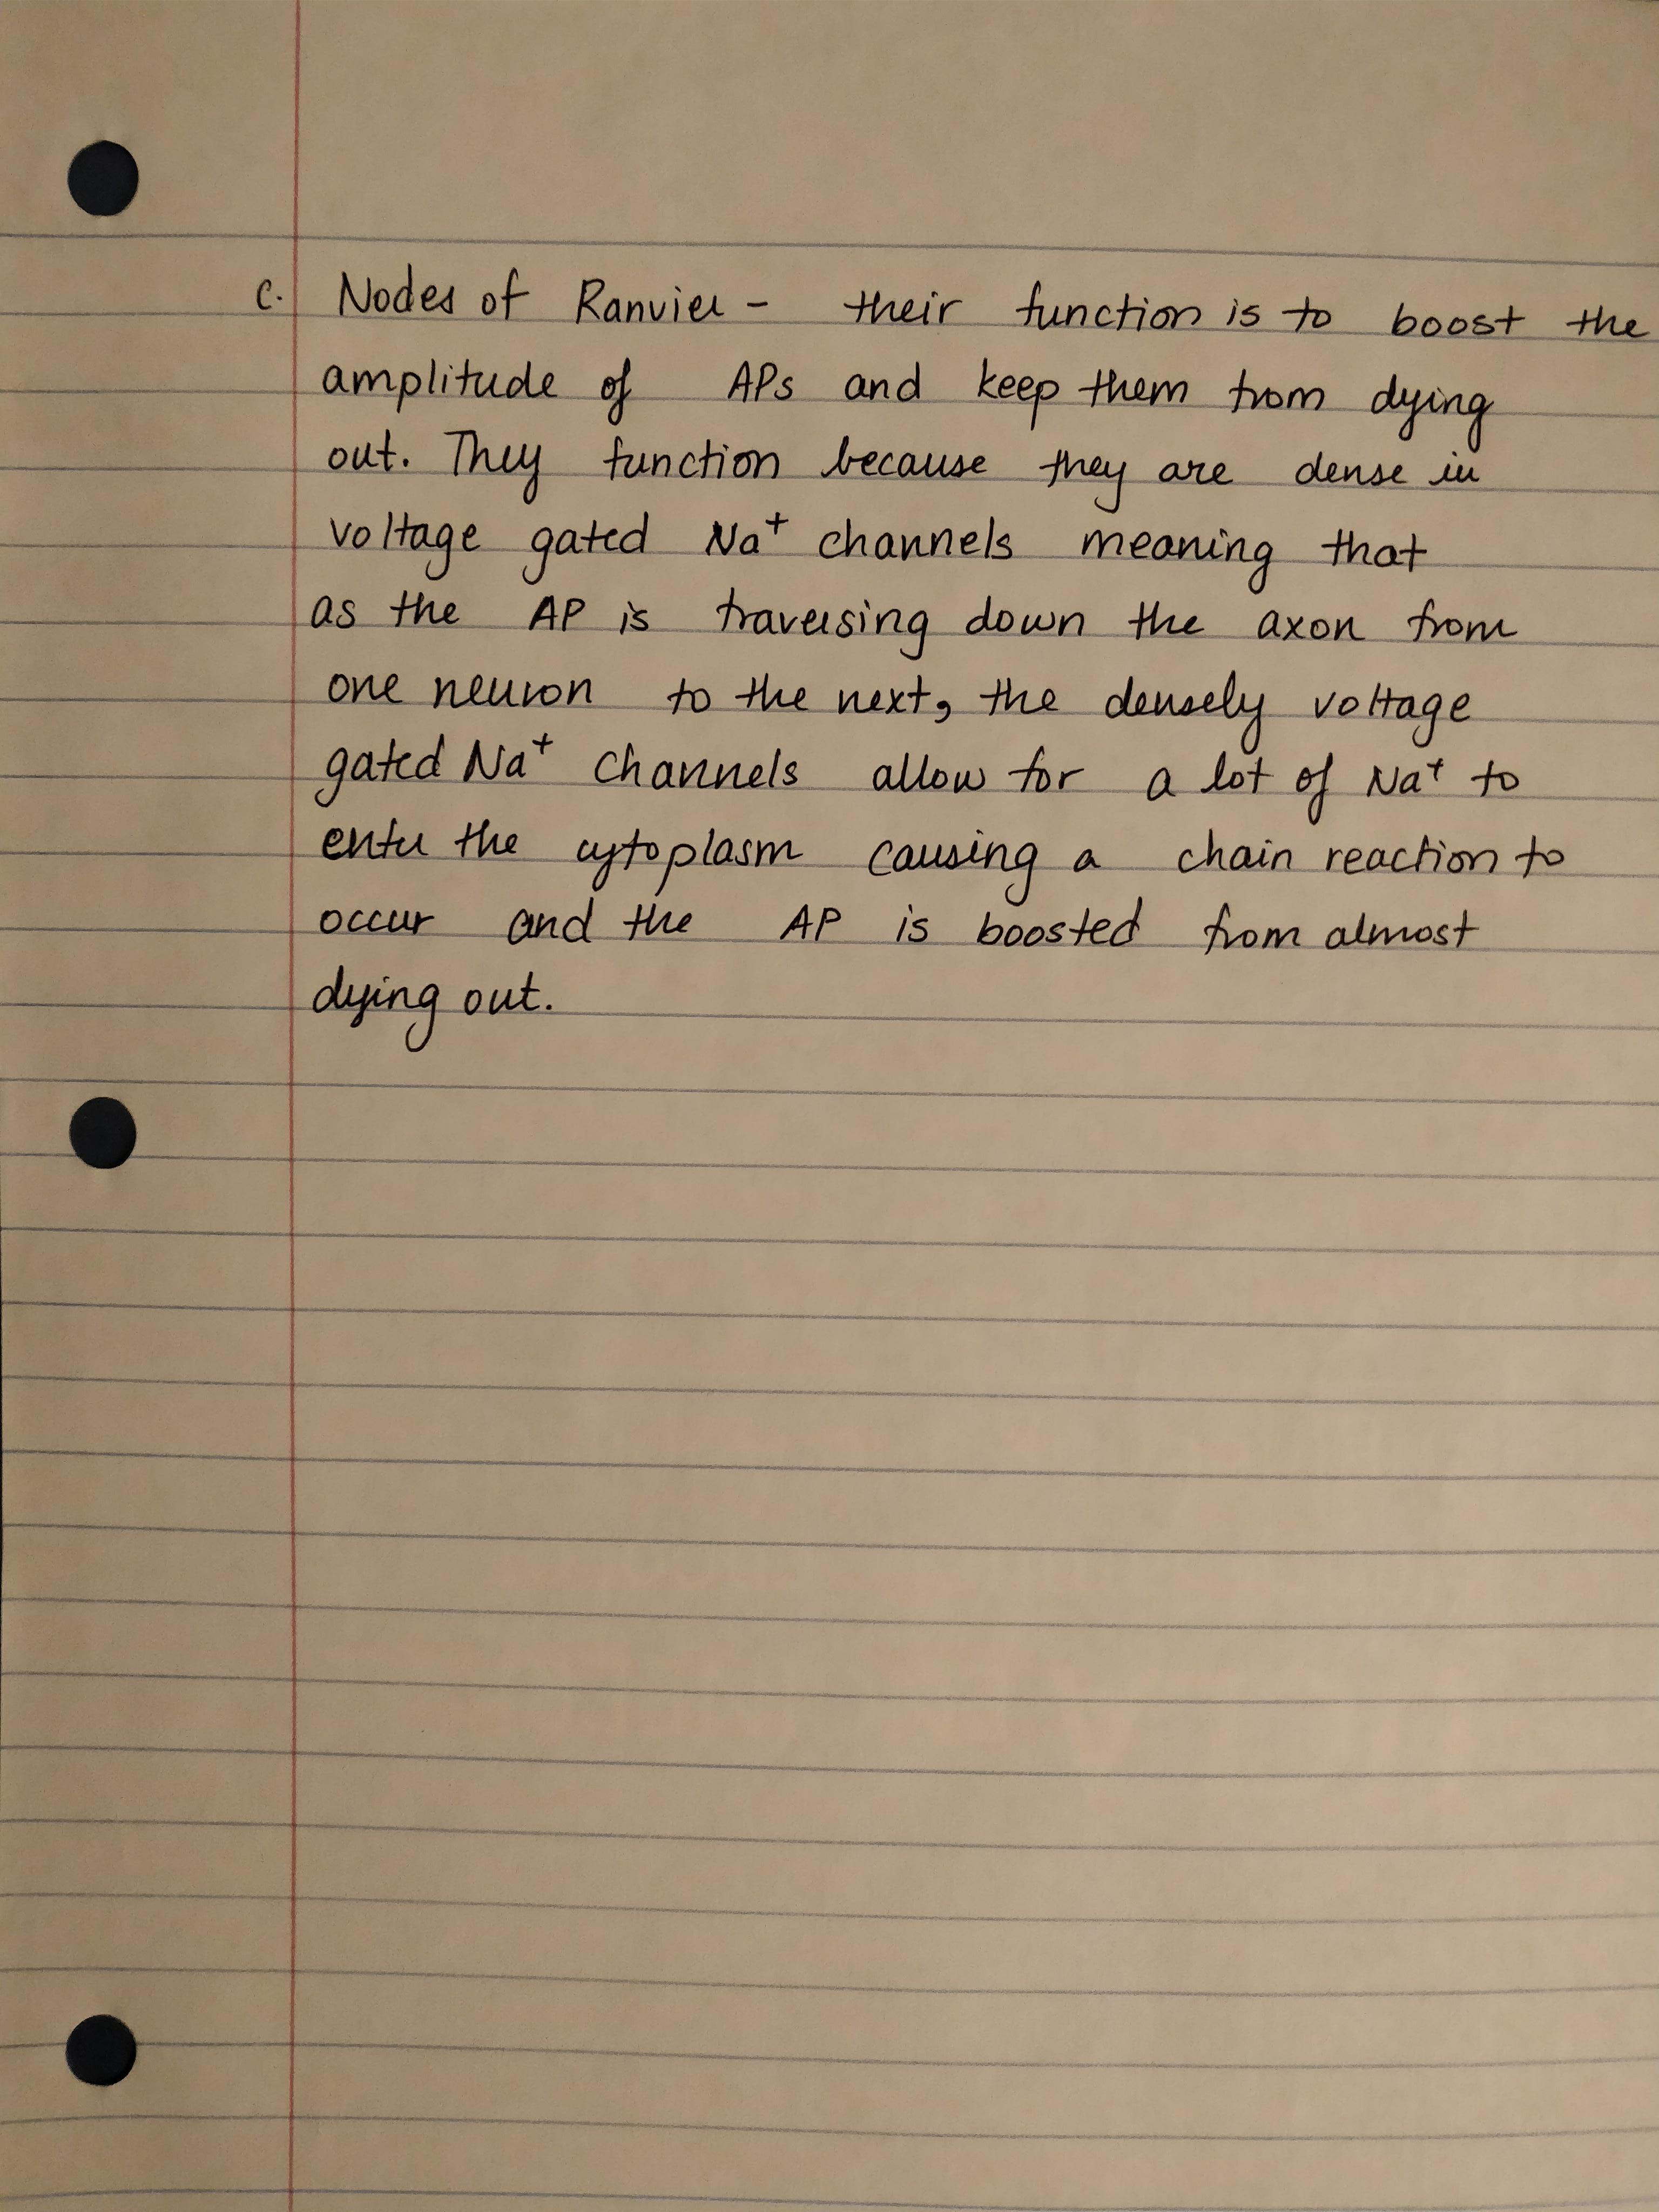 c. Nodes of Ranvier - their function is to boost the
amplitude of APs and keep them from dying
out. They function because they are dense in
voltage gated Na⁺ channels meaning that
as the AP is traversing down the axon from
one neuron to the next, the densely voltage
gated Na⁺ channels allow for a lot of Na⁺ to
enter the cytoplasm causing a chain reaction to
occur and the AP is boosted from almost
dying out.